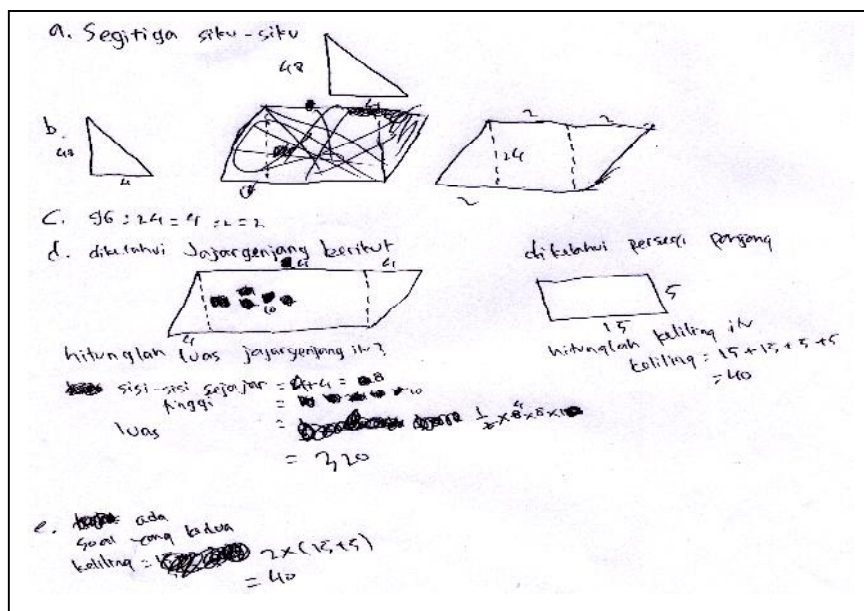 a. Segitiga siku-siku
48
b.
48
4
2 2
24
2
C. 96 : 24 = 4 : 2 = 2
d. diketahui Jajargenjang berikut
4 4
10
4
hitunglah luas jajargenjang itu?
sisi-sisi sejajar = 4+4 = 8
tinggi = 10
luas =
= 320
diketahui persegi panjang
5
15
hitunglah keliling itu
keliling = 15 + 15 + 5 + 5
= 40
e. ada
soal yang kedua
keliling = 2 × (15+5)
= 40